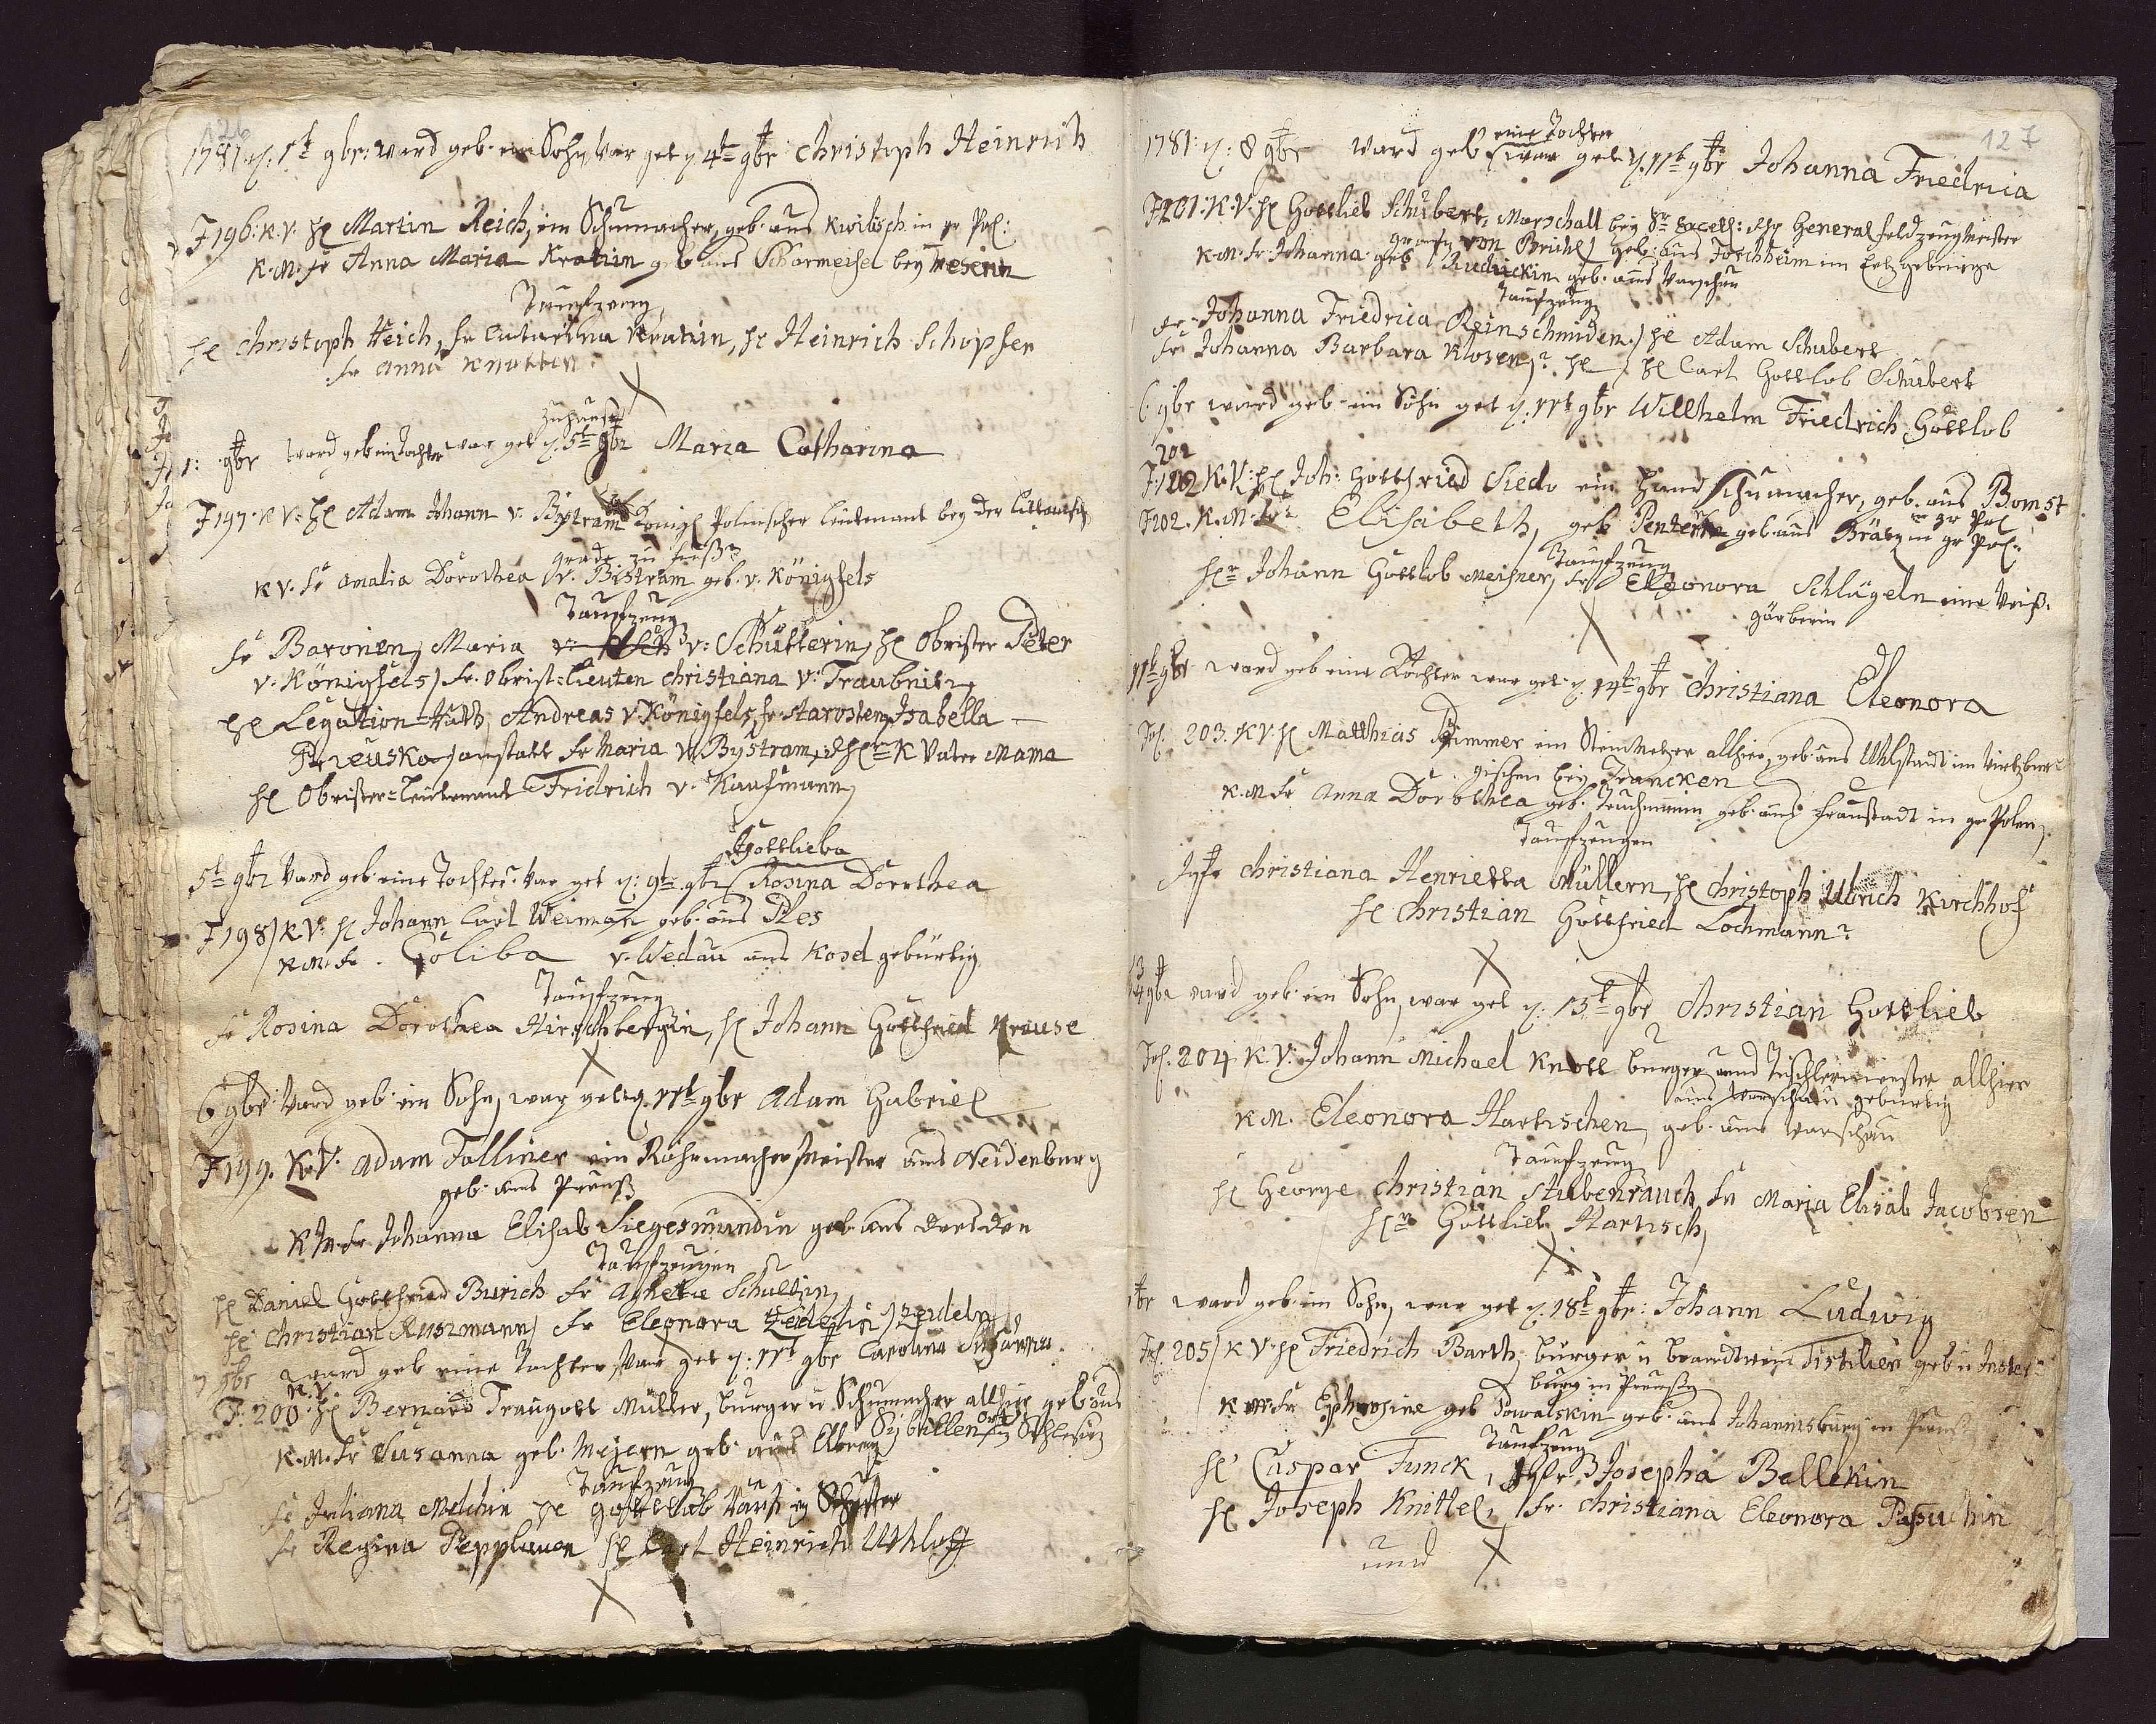 126
1781. d. 1t 9br: ward geb. ein Sohn, war get d 4te 9br Christoph Heinrich
F 196. K.V. He Martin Reich, ein Schumacher, geb. aus in gr Pol:
K.M. fr Anna Maria Kratiin geb aus Scharmeisel bey Meserin
Taufzeug
He Christoph Reich, fr Catarina Kratiin, He Heinrich Schopfer
fr Anna Knotten
zu hause
1: 9br ward geb ein Tochter war get d. 5te 9br Maria Catharina
F 197. K V. He Adam Johann v. Bystram Königl Polnischer Leutenant bey der Littauisch
garde zu fuss
K V. fr Amalia Dorothea v. Bistram geb. v. Königfels
Taufzeug
fr Baronin Maria v: Schutterin, He Obrister Peter
v. Königfels / fr. Obrist=Lieuten Christiana v. Traubnitz
He Legation=Rath Andreas v Königfels, fr Starosten Isabella
anstatt fr Maria v. Bystram, K Vater Mama
He Obrister=Leutenant Fridrich v. Kaufmann
Gottlieba
5t 9br ward geb. eine Tochter. war get d: 9te 9br Rosina Dorothea
F 198 / K.V. He Johann Carl Weimann geb. aus Ples
K.M. fr. Goliba v. Wedau aus Kosel gebürtig
Taufzeug
fr Rosina Dorothea Hirschbergin, He Johann Gottfried Krause
6 9br: ward geb. ein Sohn, war get d. 11t 9br Adam Gabriel
F 199. K.V. Adam Tolliner ein Rohrmacher Meister aus Neidenburg
geb. aus Preuss
K M. fr Johanna Elisab Siegesmundin geb. aus Dresden
Taufzeugen
He Daniel Gottfried Burich fr Agnete Schultzin
He Christian Ruszmann / fr Eleonora Zeidelin / Zeideln
7 9br ward geb eine Tochter, war get d. 11t 9br Carolina Susanna.
K.V.
F: 200. He Bernard Traugott Müller, burger u Schumacher allhier geb. aus
Sibillen Ort in Schlesien
K.M. fr Susanna geb. Mejern geb. aus Elbing
Taufzeug
fr Juliana Melchin He Gottlob
fr Regina Pepplauen He Carl Heinrich Uthloff
127
eine Tochter
1781: d: 8 9br ward geb / war get d. 11t 9br Johanna Friedrica
F 201: K.V. He Gottlieb Schubert, Marschall bey Sr Excell: General feldzeugmeister
grafen von Brühl / geb. aus Forchheim im Ertzgebürge
K.M. fr Johanna geb Rudnickin geb. aus Warschau
Taufzeug
fr Johanna Friedrica Reinschmiden / He Adam Schubert
fr Johanna Barbara Klosen, He Carl Gottlob Schubert
6 9br ward geb. ein Sohn get d. 11t 9br Willhelm Friedrich Gottlob
202
F 102 K.V. He Joh: Gottfried Siedo ein Hand Schumacher, geb. aus Bomst
in gr Pol
F 202. K.M. fr: Elisabeth, geb Penterin geb. aus Brätz in gr Pol:
Taufzeug
Her Johann Gottlob Meisner, fr Eleonora Schlägeln eine Weiss.
gärberin
11t 9br ward geb eine Tochter war get. d. 14te 9br Christiana Eleonora
Fol. 203. K V. He Matthias Dimmer ein Steinmetzer allhier, geb. aus im Wirtzbur
gischen bey Francken
K.M. fr Anna Dorothea geb. Teuchmann geb. aus Fraustadt in gr Polen
Taufzeugen
Jgfr Christiana Henrietta Müllern, He Christoph Ulbrich Kirchhof
He Christian Gottfried Lochmann
13
9br ward geb. ein Sohn, war get d. 15t 9br Christian Gottlieb
Fol. 204 K.V. Johann Michael Knoll burger und Tischlermeister allhier
aus Warschau gebürtig
K.M. Eleonora Hartischen, geb. aus Warschau
Taufzeug
He George Christian Stubenrauch fr Maria Elisab Jacobsen
Her Gottlieb Hartisch
9br ward geb. ein Sohn, war get d. 18t 9br: Johann Ludwig
Fol. 205 / K V. He Friedrich Barth, burger u brandtwein Distilier geb. u Inster
burg in Preussen
K M fr Ephrosine geb Powalskin geb. aus Johannisburg in Preuss
Taufzeug
He Caspar Funck, Jgfr Josepha Bellekin
He Joseph Knittel, fr. Christiana Eleonora
und